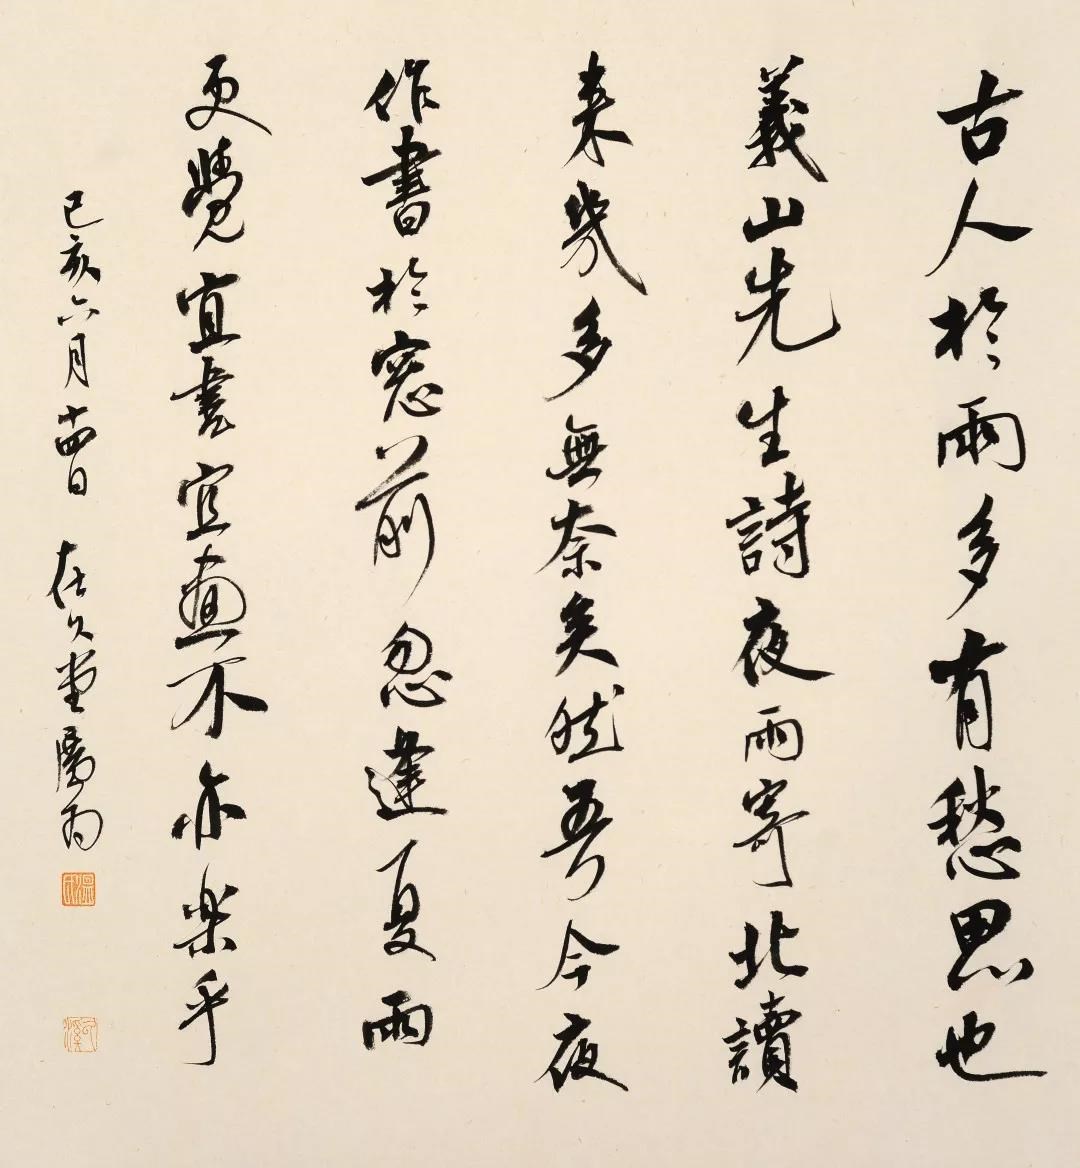 古人於雨多有愁思也
義山先生詩夜雨寄北讀
来幾多無奈矣然吾今夜
作書於窓前忽逢夏雨
更覺宜書宜畫不亦樂乎
己亥六月十四日 在久堂